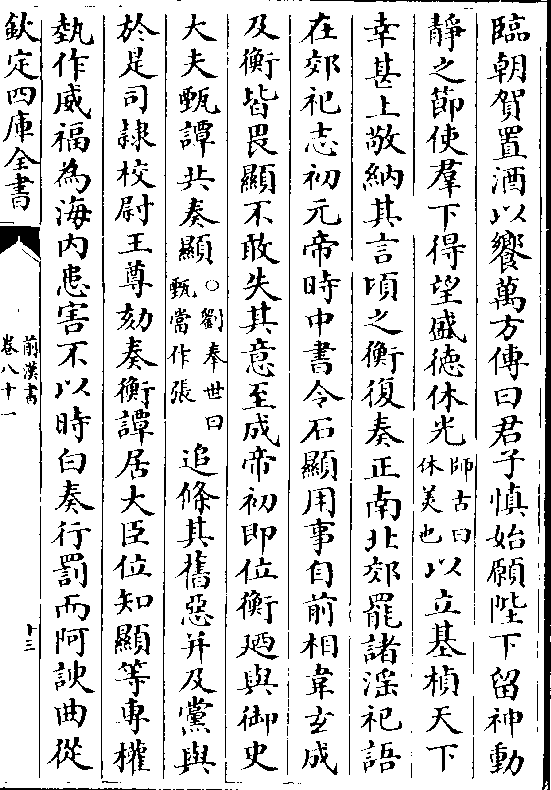 臨朝賀置酒以饗萬方傳曰君子慎始願陛下留神動
靜之節使羣下得望盛德休光師古曰休美也以立基楨天下
幸甚上敬納其言頃之衡復奏正南北郊罷諸淫祀語
在郊祀志初元帝時中書令石顯用事自前相韋玄成
及衡皆畏顯不敢失其意至成帝初即位衡廼與御史
大夫甄譚共奏顯○劉奉世曰甄當作張追條其舊惡并及黨與
於是司隸校尉王尊劾奏衡譚居大臣位知顯等專權
埶作威福為海内患害不以時白奏行罰而阿諛曲從
欽定四庫全書
前漢書
卷八十一
十三